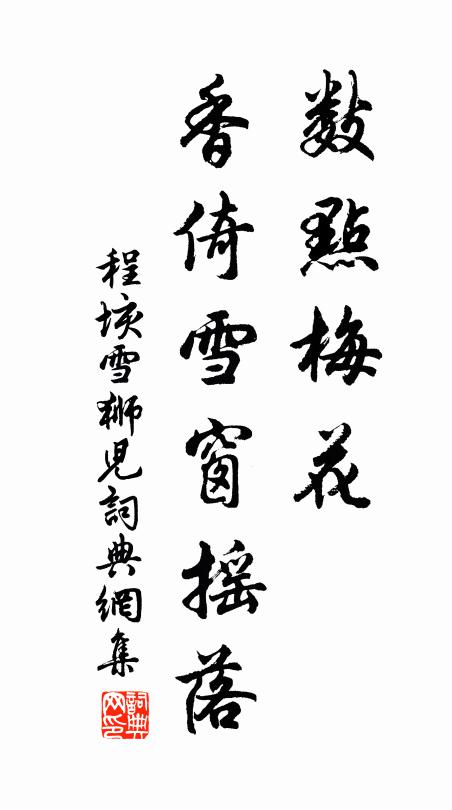 數點梅花
香倚雪窗搖落
程垓雪獅兒詞典網集
詞典網印